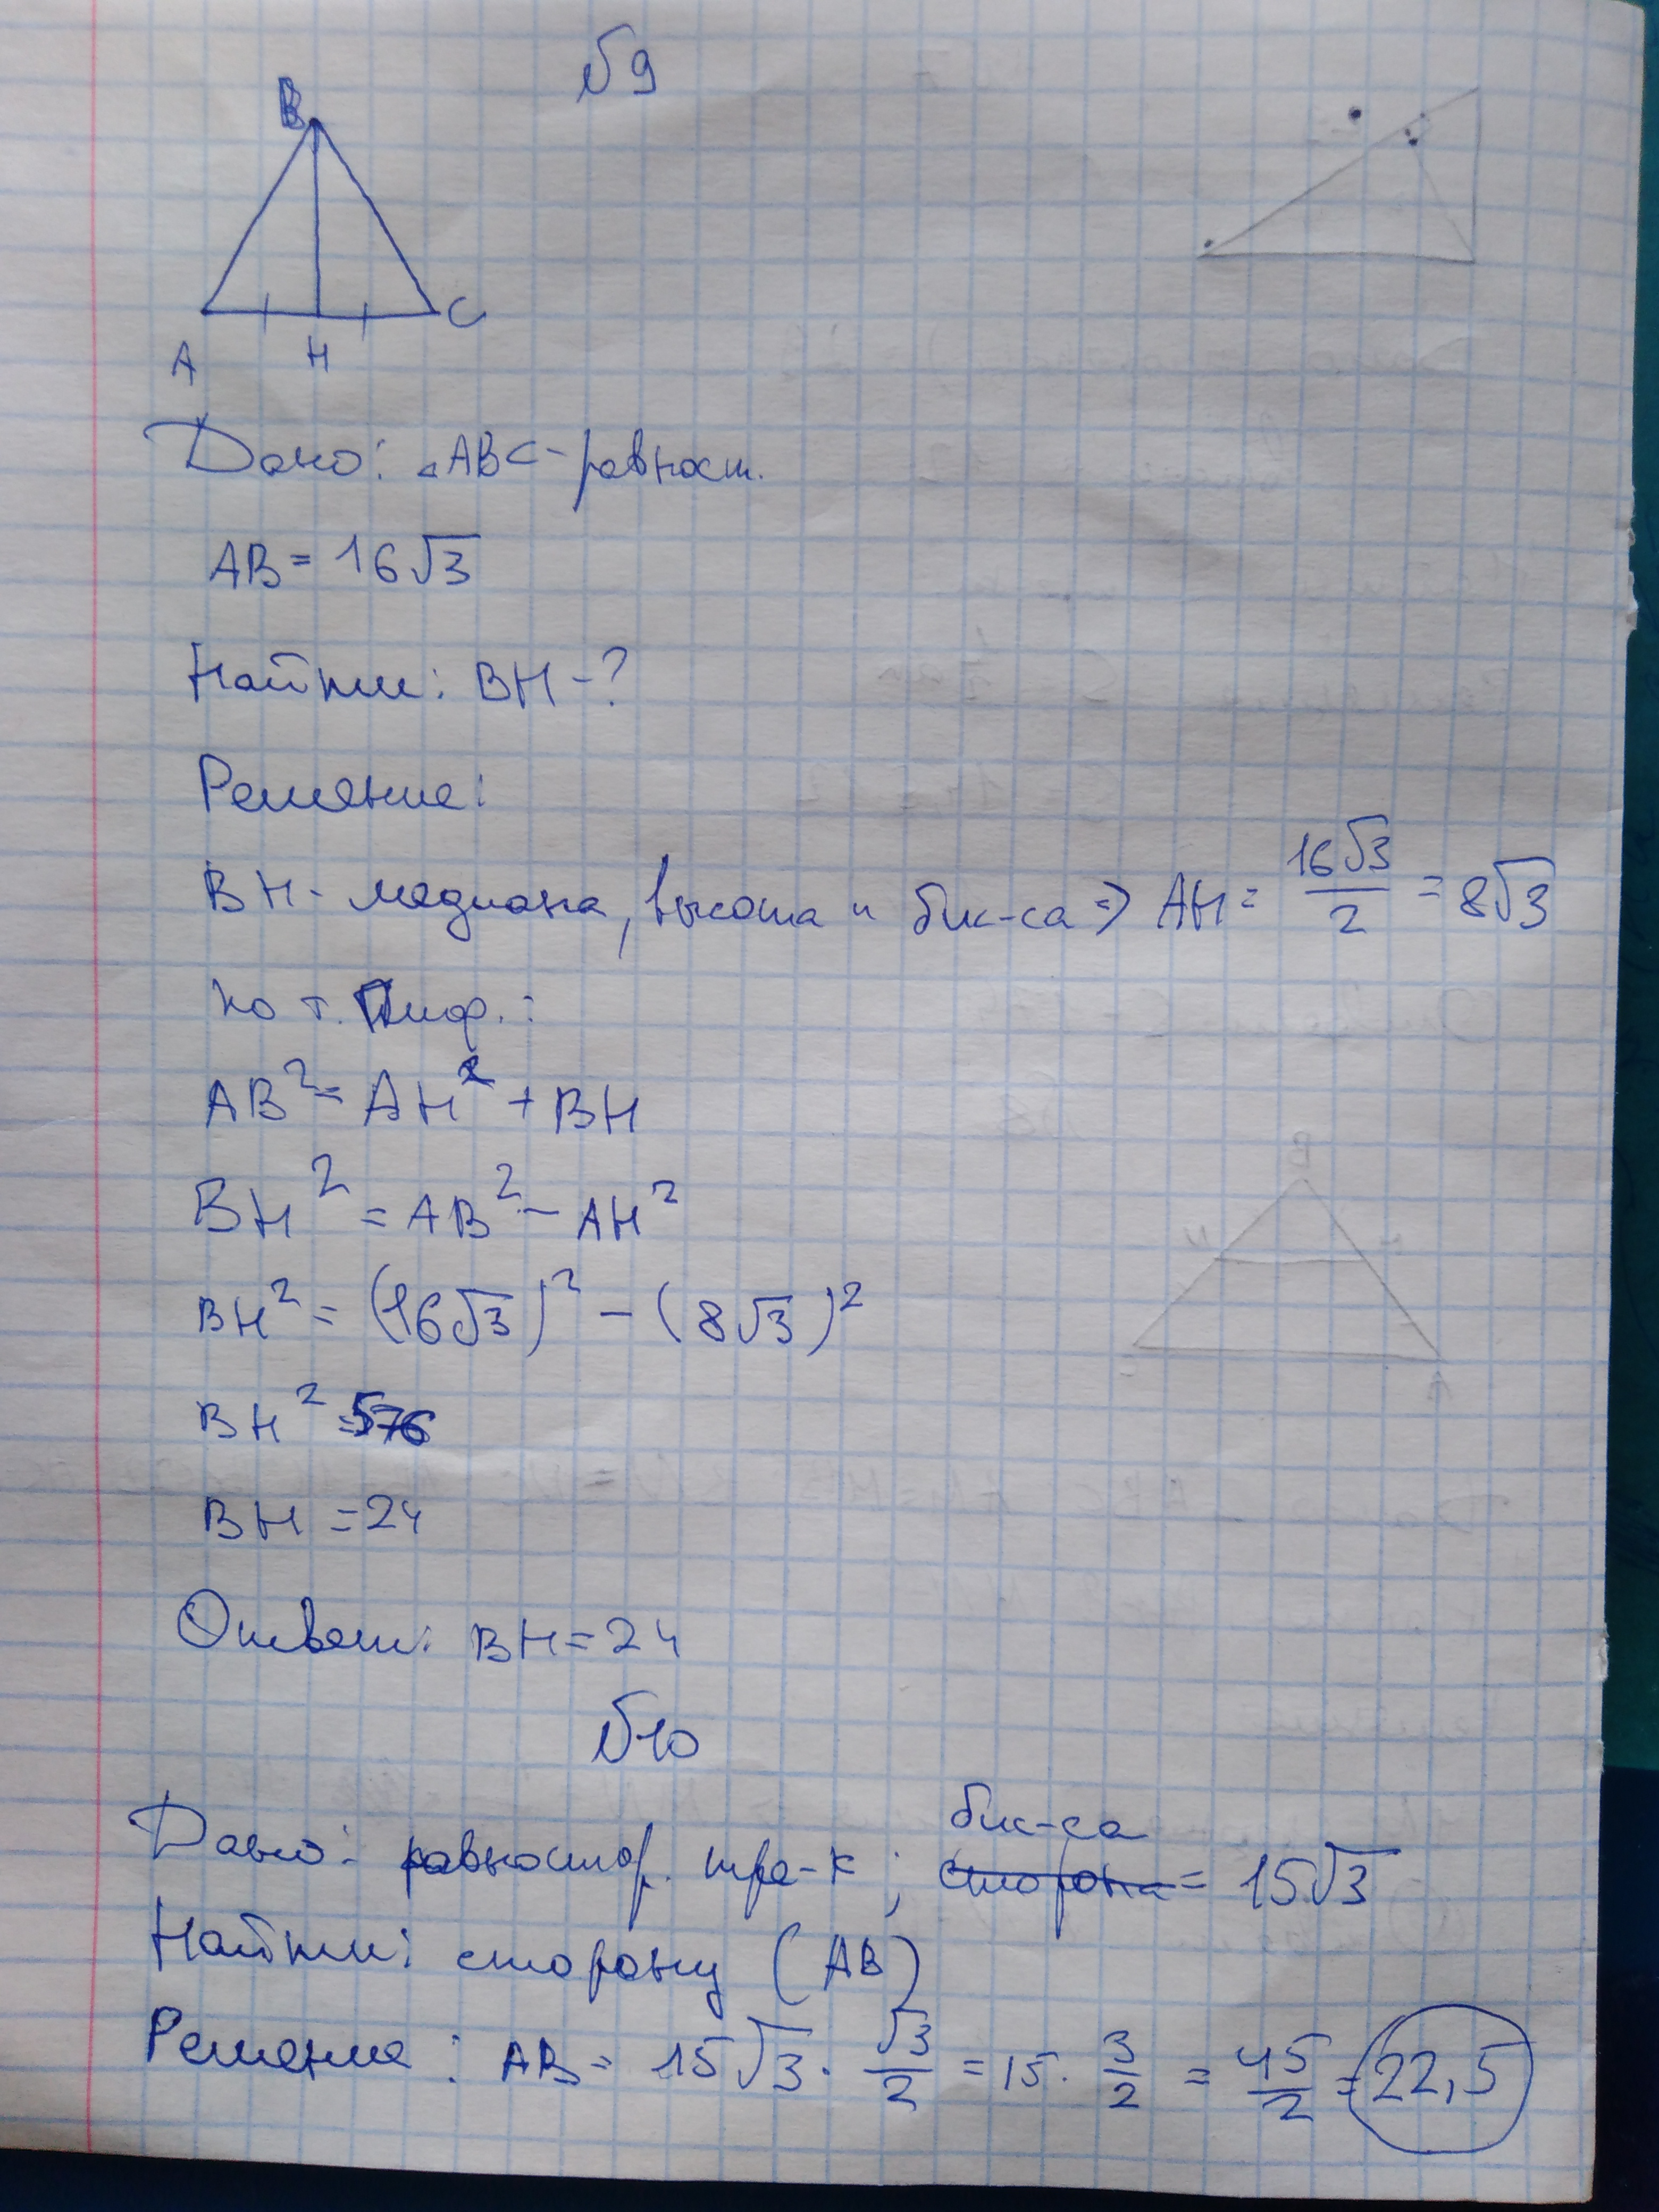 №9
B
A H C
Дано: △ABC - равност.
AB = 16√3
Найти: BH - ?
Решение:
BH - медиана, высота и бис-са => AH = 16√3/2 = 8√3
по т. Пиф.:
AB² = AH² + BH
BH² = AB² - AH²
BH² = (16√3)² - (8√3)²
BH² = 576
BH = 24
Ответ: BH = 24
№10
Дано: равностор. тре-к; бис-са = 15√3
Найти: сторону (AB)
Решение: AB = 15√3 · √3/2 = 15 · 3/2 = 45/2 = 22,5